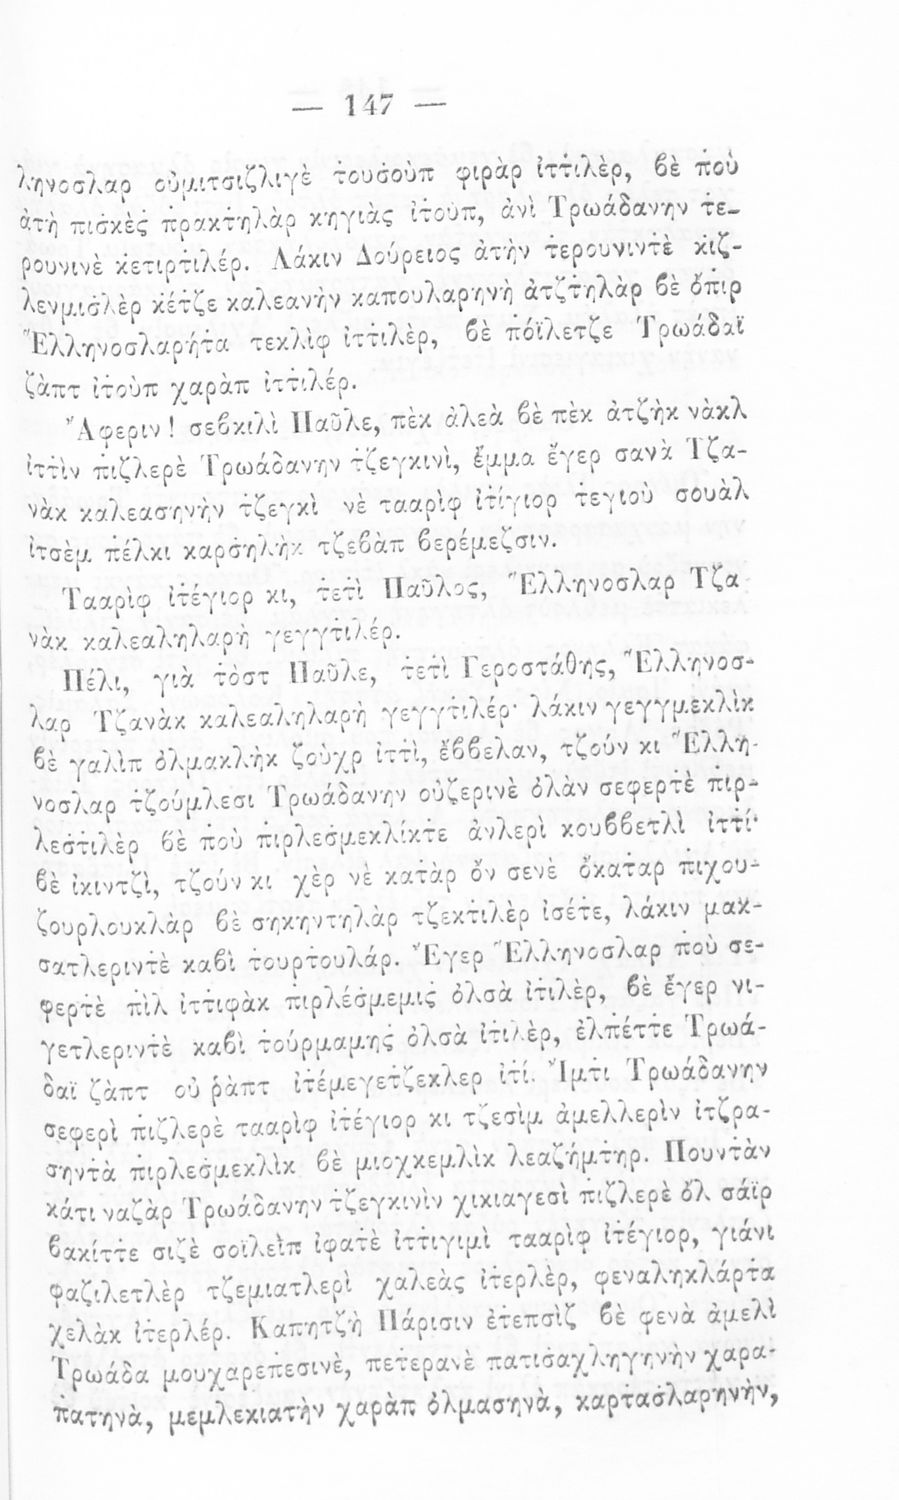 — 147 —
ληνοσλαρ οὐμιτσιζλιγὲ τουσοὺπ φιρὰρ ἰττιλὲρ, βὲ ποὺ
ἀτὴ πισκὲς πρακτηλὰρ κηγιὰς ἰτοὺπ, ἀνὶ Τρωάδανην τε-
ρουνινὲ κετιρτιλέρ. Λάκιν Δούρειος ἀτὴν τερουνιντὲ κιζ-
λενμισλὲρ κέτζε καλεανὴν καπουλαρηνὴ ἀτζτηλὰρ βὲ ὄπιρ
Ἑλληνοσλαρήτα τεκλὶφ ἰττιλὲρ, βὲ πόϊλετζε Τρωάδαϊ
ζὰπτ ἰτοὺπ χαρὰπ ἰττιλέρ.
Ἄφεριν! σεβκιλὶ Παῦλε, πὲκ ἀλεὰ βὲ πὲκ ἀτζὴκ νὰκλ
ἰττὶν πιζλερὲ Τρωάδανην τζεγκινὶ, ἔμμα ἔγερ σανὰ Τζα-
νὰκ καλεασηνὴν τζεγκὶ νὲ τααρὶφ ἰτίγιορ τεγιοὺ σουὰλ
ἰτσὲμ πέλκι καρσηλὴκ τζεβὰπ βερέμεζσιν.
Τααρὶφ ἰτέγιορ κι, τετὶ Παῦλος, Ἕλληνοσλαρ Τζα
νὰκ καλεαληλαρὴ γεγγτιλέρ.
Πέλι, γιὰ τὸστ Παῦλε, τετὶ Γεροστάθης, Ἕλληνοσ-
λαρ Τζανὰκ καλεαληλαρὴ γεγγτιλέρ· λάκιν γεγγμεκλὶκ
βὲ γαλὶπ ὀλμακλὴκ ζοὺχρ ἰττὶ, ἔββελαν, τζούν κι Ἕλλη-
νοσλαρ τζούμλεσι Τρωάδανην οὐζερινὲ ὀλὰν σεφερτὲ πιρ-
λεστιλὲρ βὲ ποὺ πιρλεσμεκλίκτε ἀνλερὶ κουββετλὶ ἰττί·
βὲ ἰκιντζὶ, τζούν κι χὲρ νὲ κατὰρ ὂν σενὲ ὄκαταρ πιχου-
ζουρλουκλὰρ βὲ σηκηντηλὰρ τζεκτιλὲρ ἰσέτε, λάκιν μακ-
σατλεριντὲ καβὶ τουρτουλάρ. Ἔγερ Ἕλληνοσλαρ ποὺ σε-
φερτὲ πὶλ ἰττιφὰκ πιρλέσμεμις ὀλσὰ ἰτιλὲρ, βὲ ἔγερ νι-
γετλεριντὲ καβὶ τούρμαμης ὀλσὰ ἰτιλὲρ, ἐλπέττε Τρωά-
δαϊ ζὰπτ οὐ ῥὰπτ ἰτέμεγετζεκλερ ἰτί. Ἴμτι Τρωάδανην
σεφερὶ πιζλερὲ τααρὶφ ἰτέγιορ κι τζεσὶμ ἀμελλερὶν ἰτζρα-
σηντὰ πιρλεσμεκλὶκ βὲ μιοχκεμλὶκ λεαζήμτηρ. Πουντὰν
κάτι ναζὰρ Τρωάδανην τζεγκινὶν χικιαγεσὶ πιζλερὲ ὂλ σάϊρ
βακίττε σιζὲ σοϊλεὶπ ἰφατὲ ἰττιγιμὶ τααρὶφ ἰτέγιορ, γιάνι
φαζιλετλὲρ τζεμιατλερὶ χαλεὰς ἰτερλὲρ, φεναληκλάρτα
χελὰκ ἰτερλέρ. Καπητζὴ Πάρισιν ἐτεπσὶζ βὲ φενὰ ἀμελὶ
Τρωάδα μουχαρεπεσινὲ, πετερανὲ πατισαχληγηνὴν χαρα-
πατηνὰ, μεμλεκιατὴν χαρὰπ ὀλμασηνὰ, καρτασλαρηνὴν,